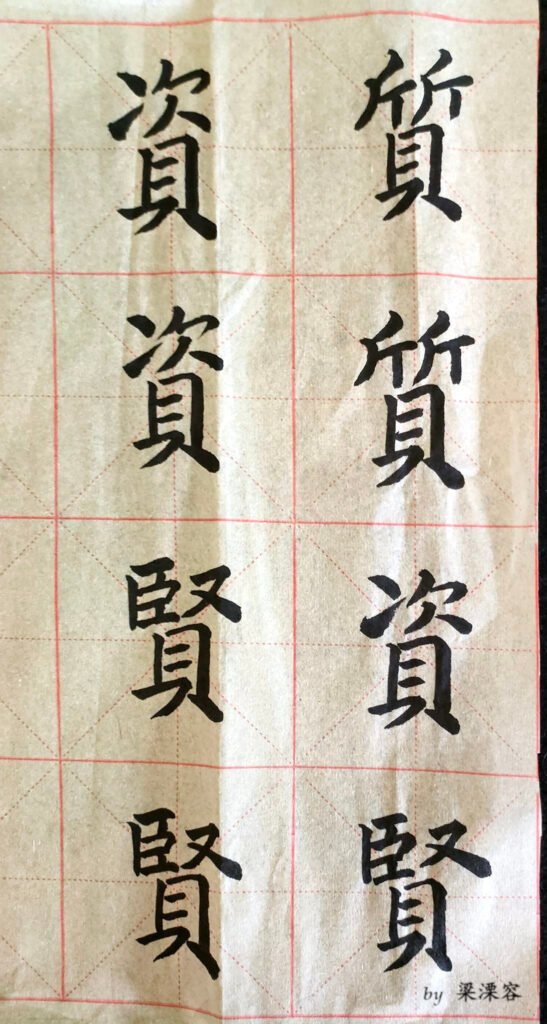 質質資賢
資資賢賢
by 梁溧容